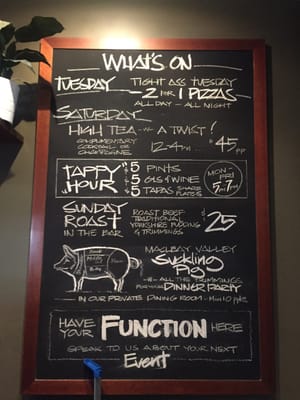 WHAT'S ON
TUESDAY TIGHT ASS TUESDAY
2 FOR 1 PIZZAS
ALL DAY - ALL NIGHT
SATURDAY
HIGH TEA WITH A TWIST!
COMPLIMENTARY
COCKTAIL OR
CHAMPAGNE
12-4PM
$45PP
TAPPY HOUR
$5 PINTS
$5 GLS OF WINE
$5 TAPAS SHARE PLATES
MON-FRI
5PM-7PM
SUNDAY
ROAST
IN THE BAR
ROAST BEEF
TRADITIONAL
YORKSHIRE PUDDING
& TRIMMINGS
$25
MACLEAY VALLEY
Suckling
Pig
ALL THE TRIMMINGS
FOR YOUR DINNER PARTY
IN OUR PRIVATE DINING ROOM - Min 10 ppl
HAVE YOUR FUNCTION HERE
SPEAK TO US ABOUT YOUR NEXT
Event